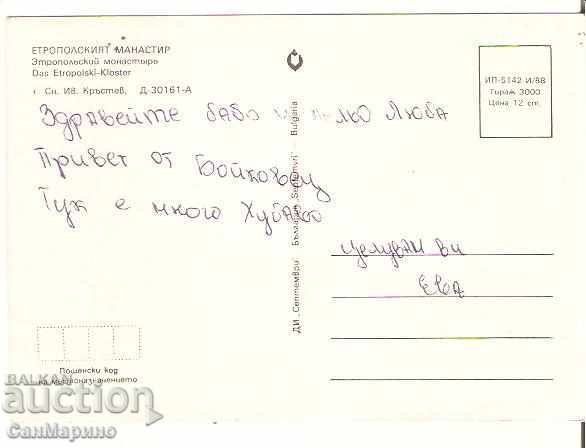 ЕТРОПОЛСКИЯТ МАНАСТИР
Этропольский монастырь
Das Etropolski-Kloster
Сн. Ив. Кръстев, Д-30161-А
ИП-5142 И/88
Тираж 3000
Цена 12 ст.
Здравейте бабо и Люба
Привет от Бойковец
Тук е много Хубаво
целувам ви
Ева
ДИ „Септември" България „Septemvri" Bulgaria
Пощенски код
на местоназначението
BALKAN
auction
СанМарино